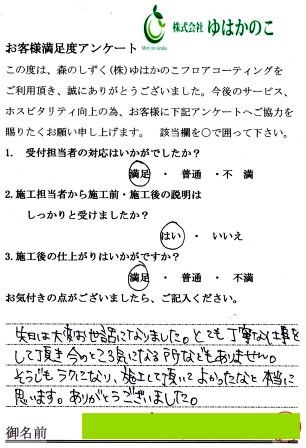 Mori no shizuku
株式会社 ゆはかのこ
お客様満足度アンケート
この度は、森のしずく(株)ゆはかのこフロアコーティングを
ご利用頂き、誠にありがとうございました。今後のサービス、
ホスピタリティ向上の為、お客様に下記アンケートへご協力を
賜りたくお願い申し上げます。 該当欄を○で囲って下さい。
1. 受付担当者の対応はいかがでしたか?
満足 ・ 普通 ・ 不満
2.施工担当者から施工前・施工後の説明は
しっかりと受けましたか?
はい ・ いいえ
3.施工後の仕上がりはいかがですか?
満足 ・ 普通 ・ 不満
お気付きの点がございましたら、ご記入ください。
先日は大変お世話になりました。とても丁寧な仕事を
して頂き今のところ気になる所などもありません。
そうじもラクになり、施工して頂いてよかったなと本当に
思います。ありがとうございました。
御名前